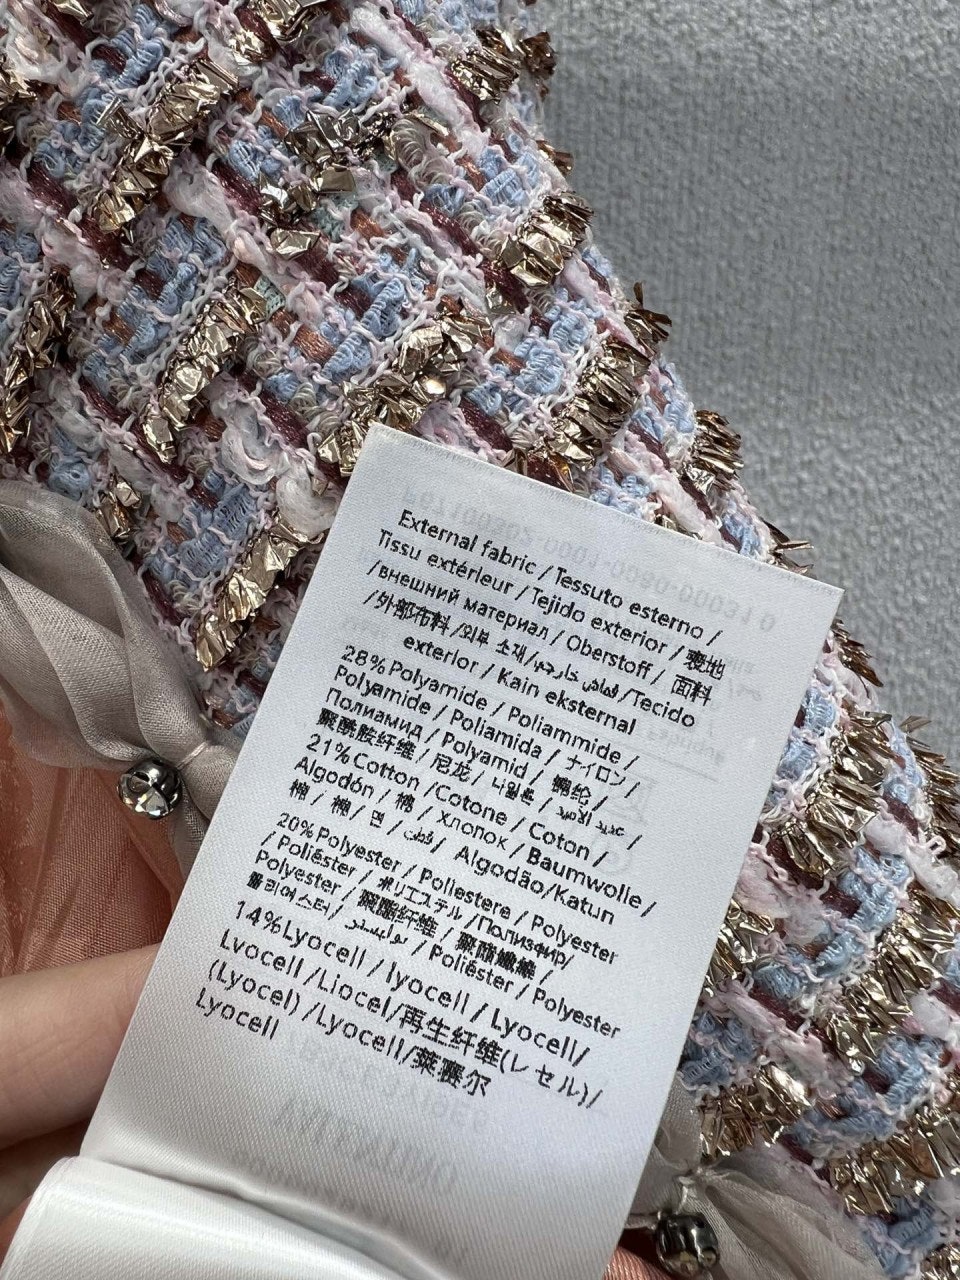 External fabric / Tessuto esterno /
Tissu extérieur / Tejido exterior / 表地
/внешний материал / Oberstoff / 面料
/外部布料 /외부 소재/قماش خارجي/Tecido
exterior / Kain eksternal
28%Polyamide / Poliammide /
Polyamide / Poliamida / ナイロン /
Полиамид / Polyamid / 锦纶 /
聚酰胺纤维 / 尼龙 / 나일론 / /
21%Cotton /Cotone / Coton /
Algodón / 棉 / хлопок / Baumwolle /
棉 / 棉 / 면 / قطن / Algodão/Katun
20% Polyester / Poliestere / Polyester
/ Poliéster / ポリエステル /Полиэфир/
Polyester / 聚酯纤维 / 聚酯纖維 /
폴리에스터 / بوليستر / Poliéster / Polyester
14%Lyocell / lyocell / Lyocell/
Lvocell /Liocel/再生纤维(レセル)/
(Lyocel) /Lyocell/莱赛尔
Lyocell